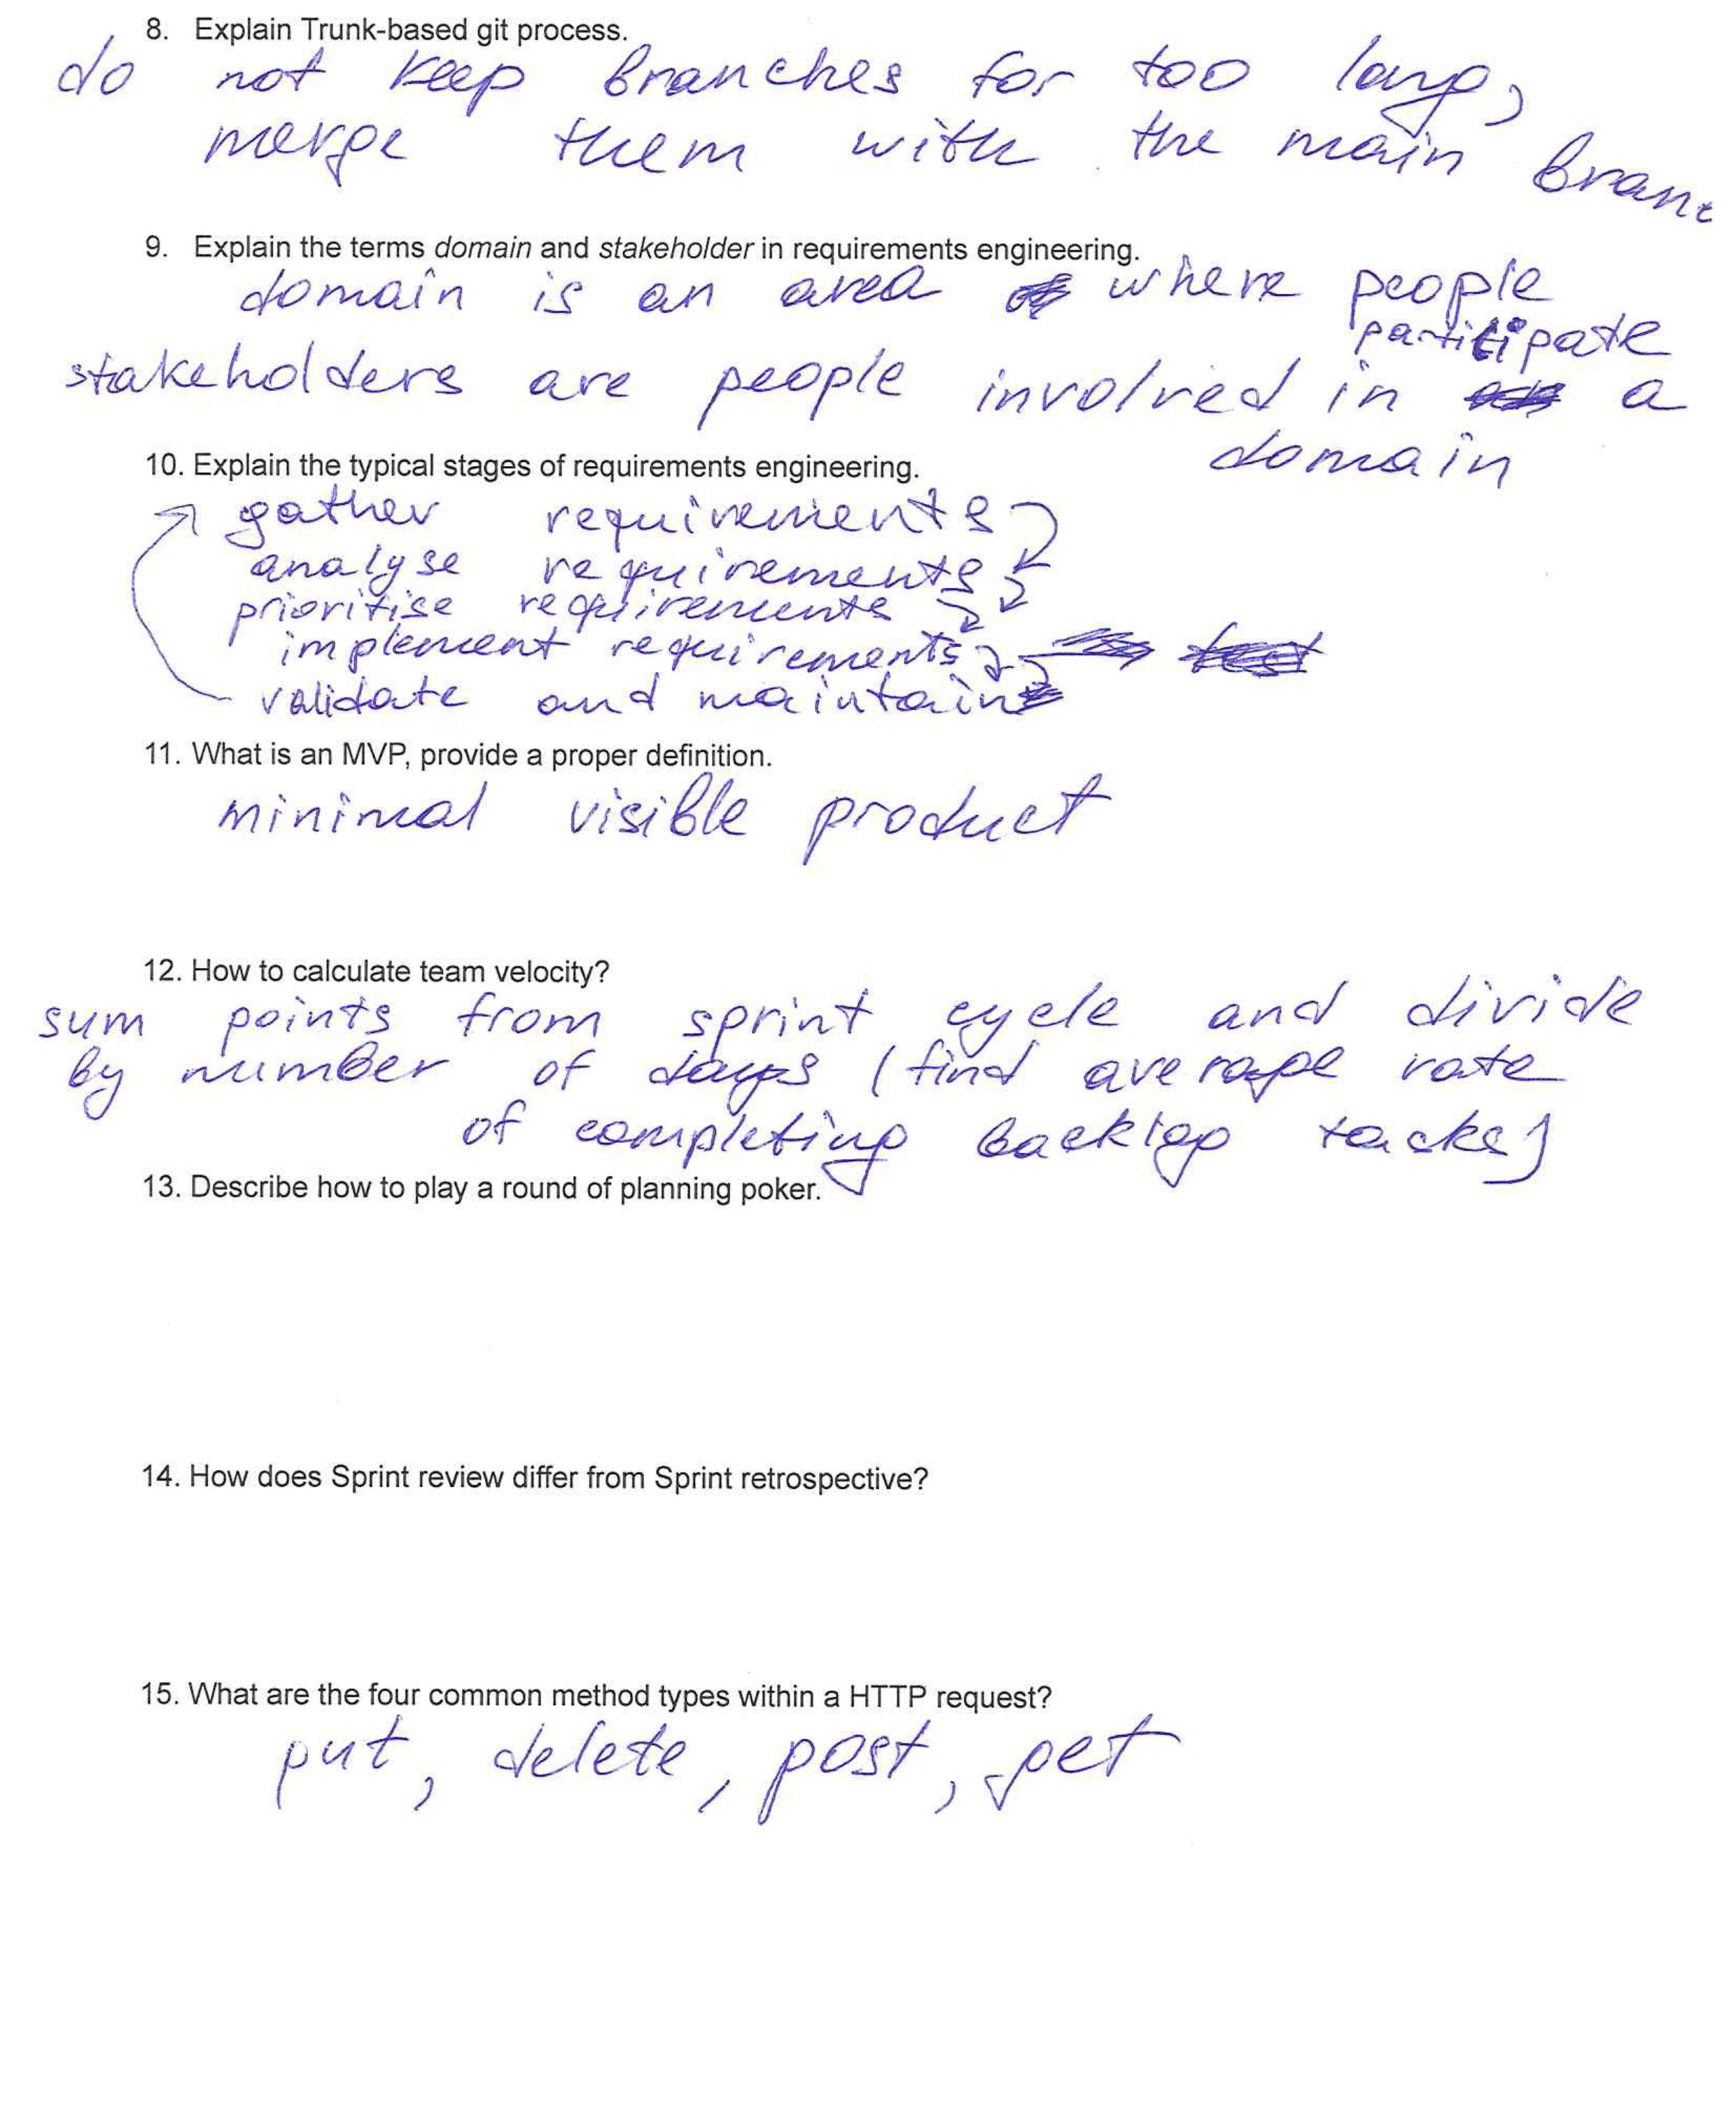 8. Explain Trunk-based git process.
do not keep branches for too long,
merge them with the main branc
9. Explain the terms domain and stakeholder in requirements engineering.
domain is an area where people
participate
stakeholders are people involved in a
domain
10. Explain the typical stages of requirements engineering.
gather requirements
analyse requirements
prioritise requirements
implement requirements
validate and maintain
11. What is an MVP, provide a proper definition.
minimal visible product
12. How to calculate team velocity?
sum points from sprint cycle and divide
by number of days (find average rate
of completing backlog tacks)
13. Describe how to play a round of planning poker.
14. How does Sprint review differ from Sprint retrospective?
15. What are the four common method types within a HTTP request?
put, delete, post, get